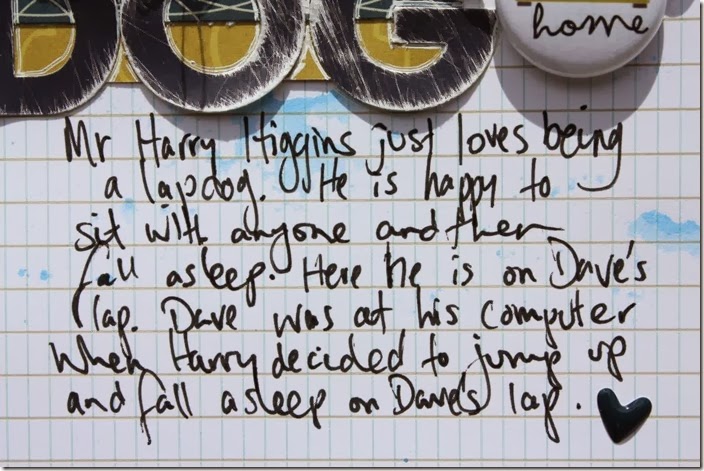 DOG
home
Mr Harry Higgins just loves being
a lapdog. He is happy to
sit with anyone and then
fall asleep. Here he is on Dave's
lap. Dave was at his computer
when Harry decided to jump up
and fall asleep on Dave's lap.